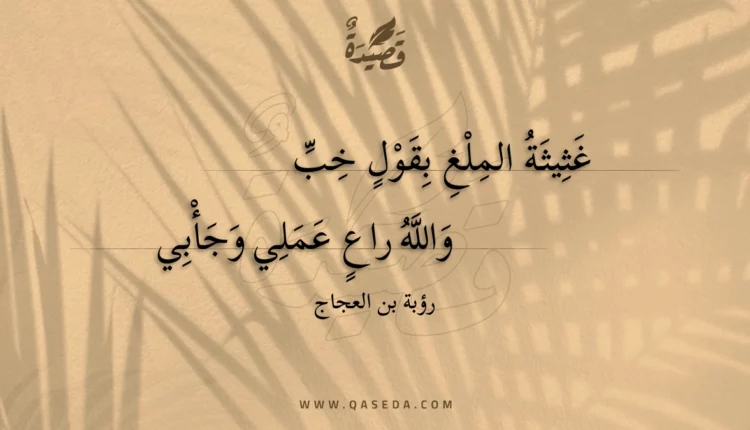 قَصِيْدَةٌ
غَثِيثَةُ المِلْغِ بِقَوْلٍ خِبِّ
وَاللَّهُ راعٍ عَمَلِي وَجَأْبِي
رؤبة بن العجاج
WWW.QASEDA.COM